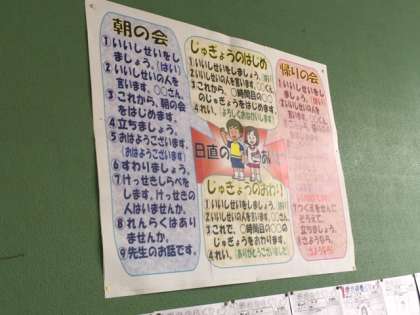 朝の会
1 いいしせいをし
ましょう。(はい)
2 いいしせいの人を
言います。○○さん。
3 これから、朝の会
をはじめます。
4 立ちましょう。
5 おはようございます。
(おはようございます)
6 すわりましょう。
7 けっせきしらべを
します。けっせきの
人はいませんか。
8 れんらくはあり
ませんか。
9 先生のお話です。
じゅぎょうのはじめ
1 いいしせいをしましょう。(はい)
2 いいしせいの人を言います。○○くん。
3 これから、○時間目の○○
のじゅぎょうをはじめます。
4 れい。(よろしくおねがいします)
日直の
じゅぎょうのおわり
1 いいしせいをしましょう。(はい)
2 いいしせいの人を言います。○○さん。
3 これで、○時間目の○○の
じゅぎょうをおわります。
4 れい。(ありがとうございました)
帰りの会
1 いいしせいをし
ましょう。(はい)
2 いいしせいの人を
言います。○○くん。
7 つくえをせいとんして
そろえて、
立ちましょう。
8 さようなら。
(さようなら)